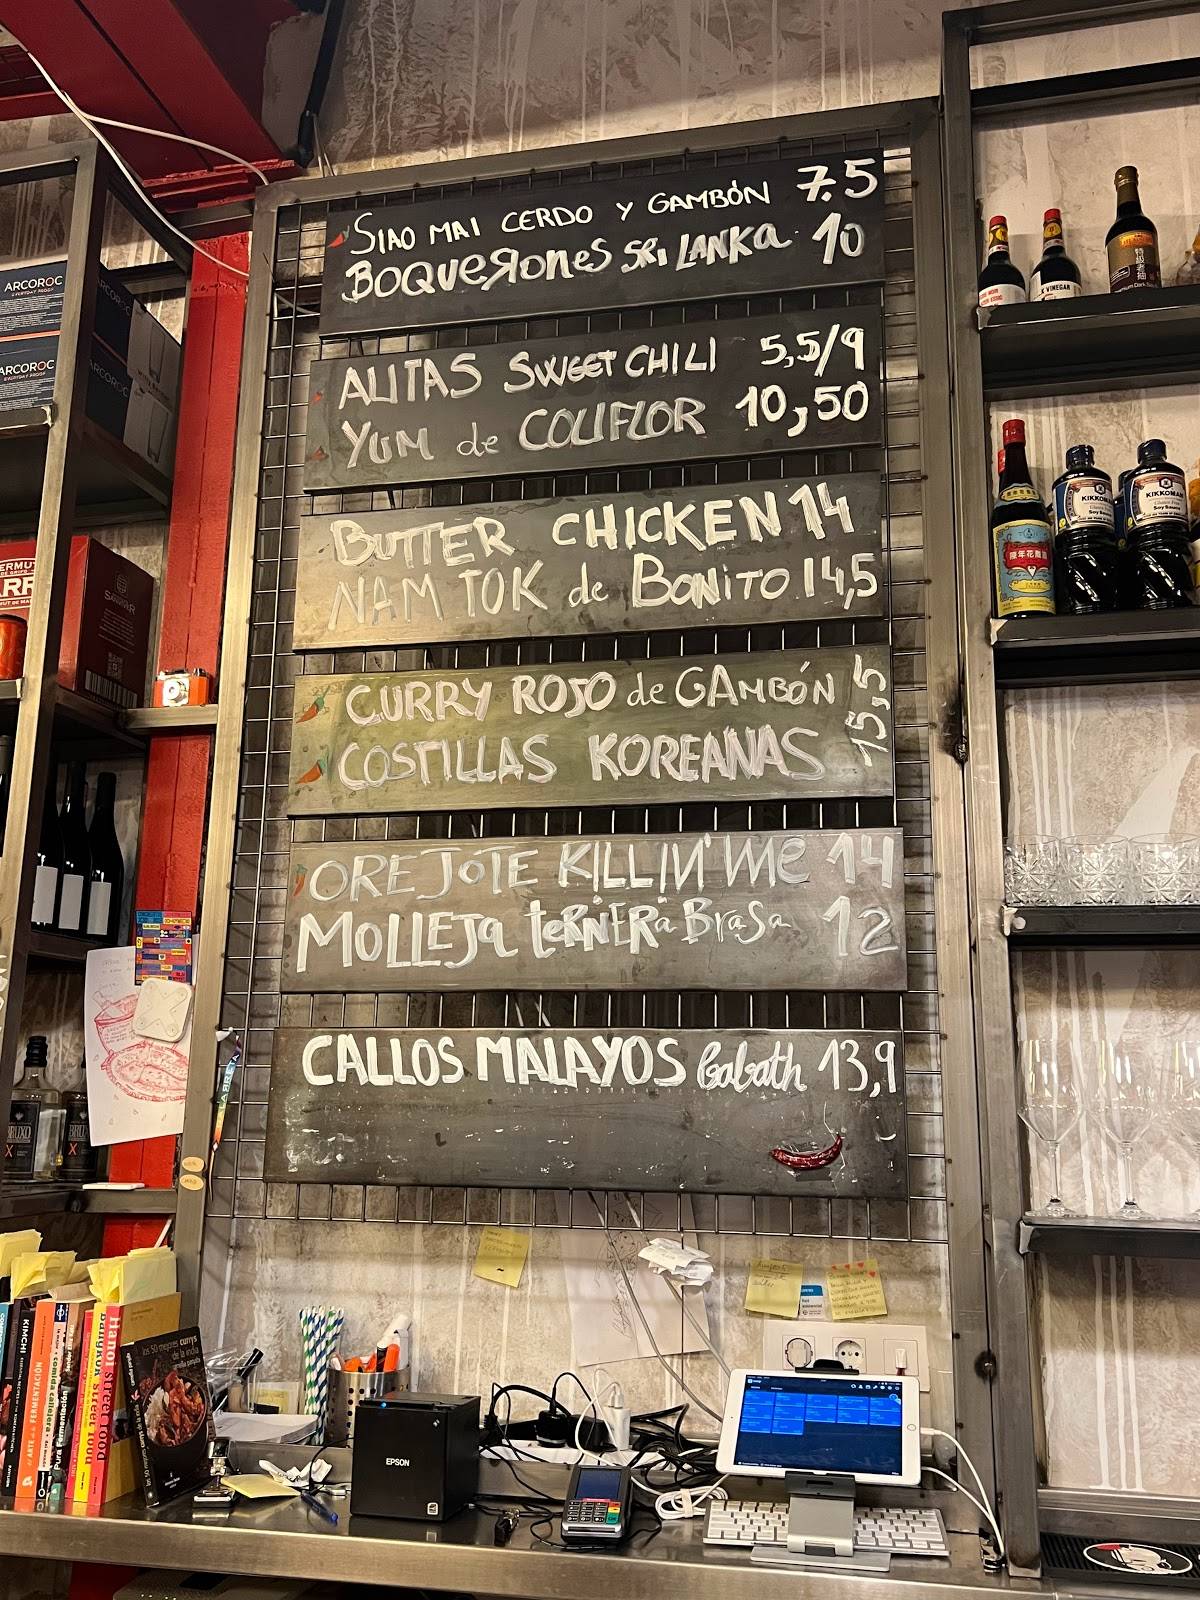 SIAO MAI CERDO Y GAMBÓN 7.5
BOQUERONES SRI LANKA 10
ALITAS SWEET CHILI 5,5/9
YUM de COLIFLOR 10,50
BUTTER CHICKEN 14
NAM TOK de BONITO 14,5
CURRY ROJO de GAMBÓN
COSTILLAS KOREANAS
15,5
OREJOTE KILLIN' ME 14
MOLLEJA tERNERA BRASA 12
CALLOS MALAYOS Gabath 13,9
ARCOROC
ARCOROC
ARCOROC
ARCOROC
VINEGAR
KIKKOMAN
Soy Sauce
KIKKOMAN
Soy Sauce
KIMCHI
FERMENTACIÓN
Pura Fermentación
Bangkok street food
Hanoi street food
los 50 mejores currys
de la india
EPSON